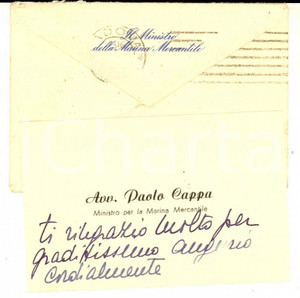 Il Ministro
della Marina Mercantile
Avv. Paolo Cappa
Ministro per la Marina Mercantile
ti ringrazio molto per
graditissimo augurio
cordialmente